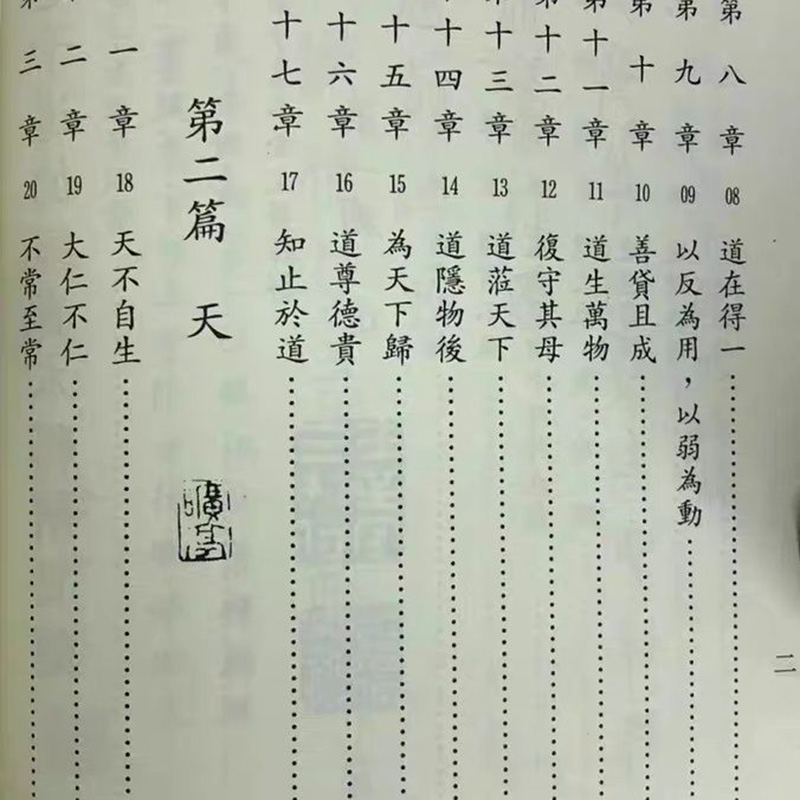 第八章 08 道在得一
第九章 09 以反為用，以弱為動
第十章 10 善貸且成
第十一章 11 道生萬物
第十二章 12 復守其母
十三章 13 道蒞天下
十四章 14 道隱物後
十五章 15 為天下歸
十六章 16 道尊德貴
十七章 17 知止於道
第二篇 天
一章 18 天不自生
二章 19 大仁不仁
第三章 20 不常至常
二